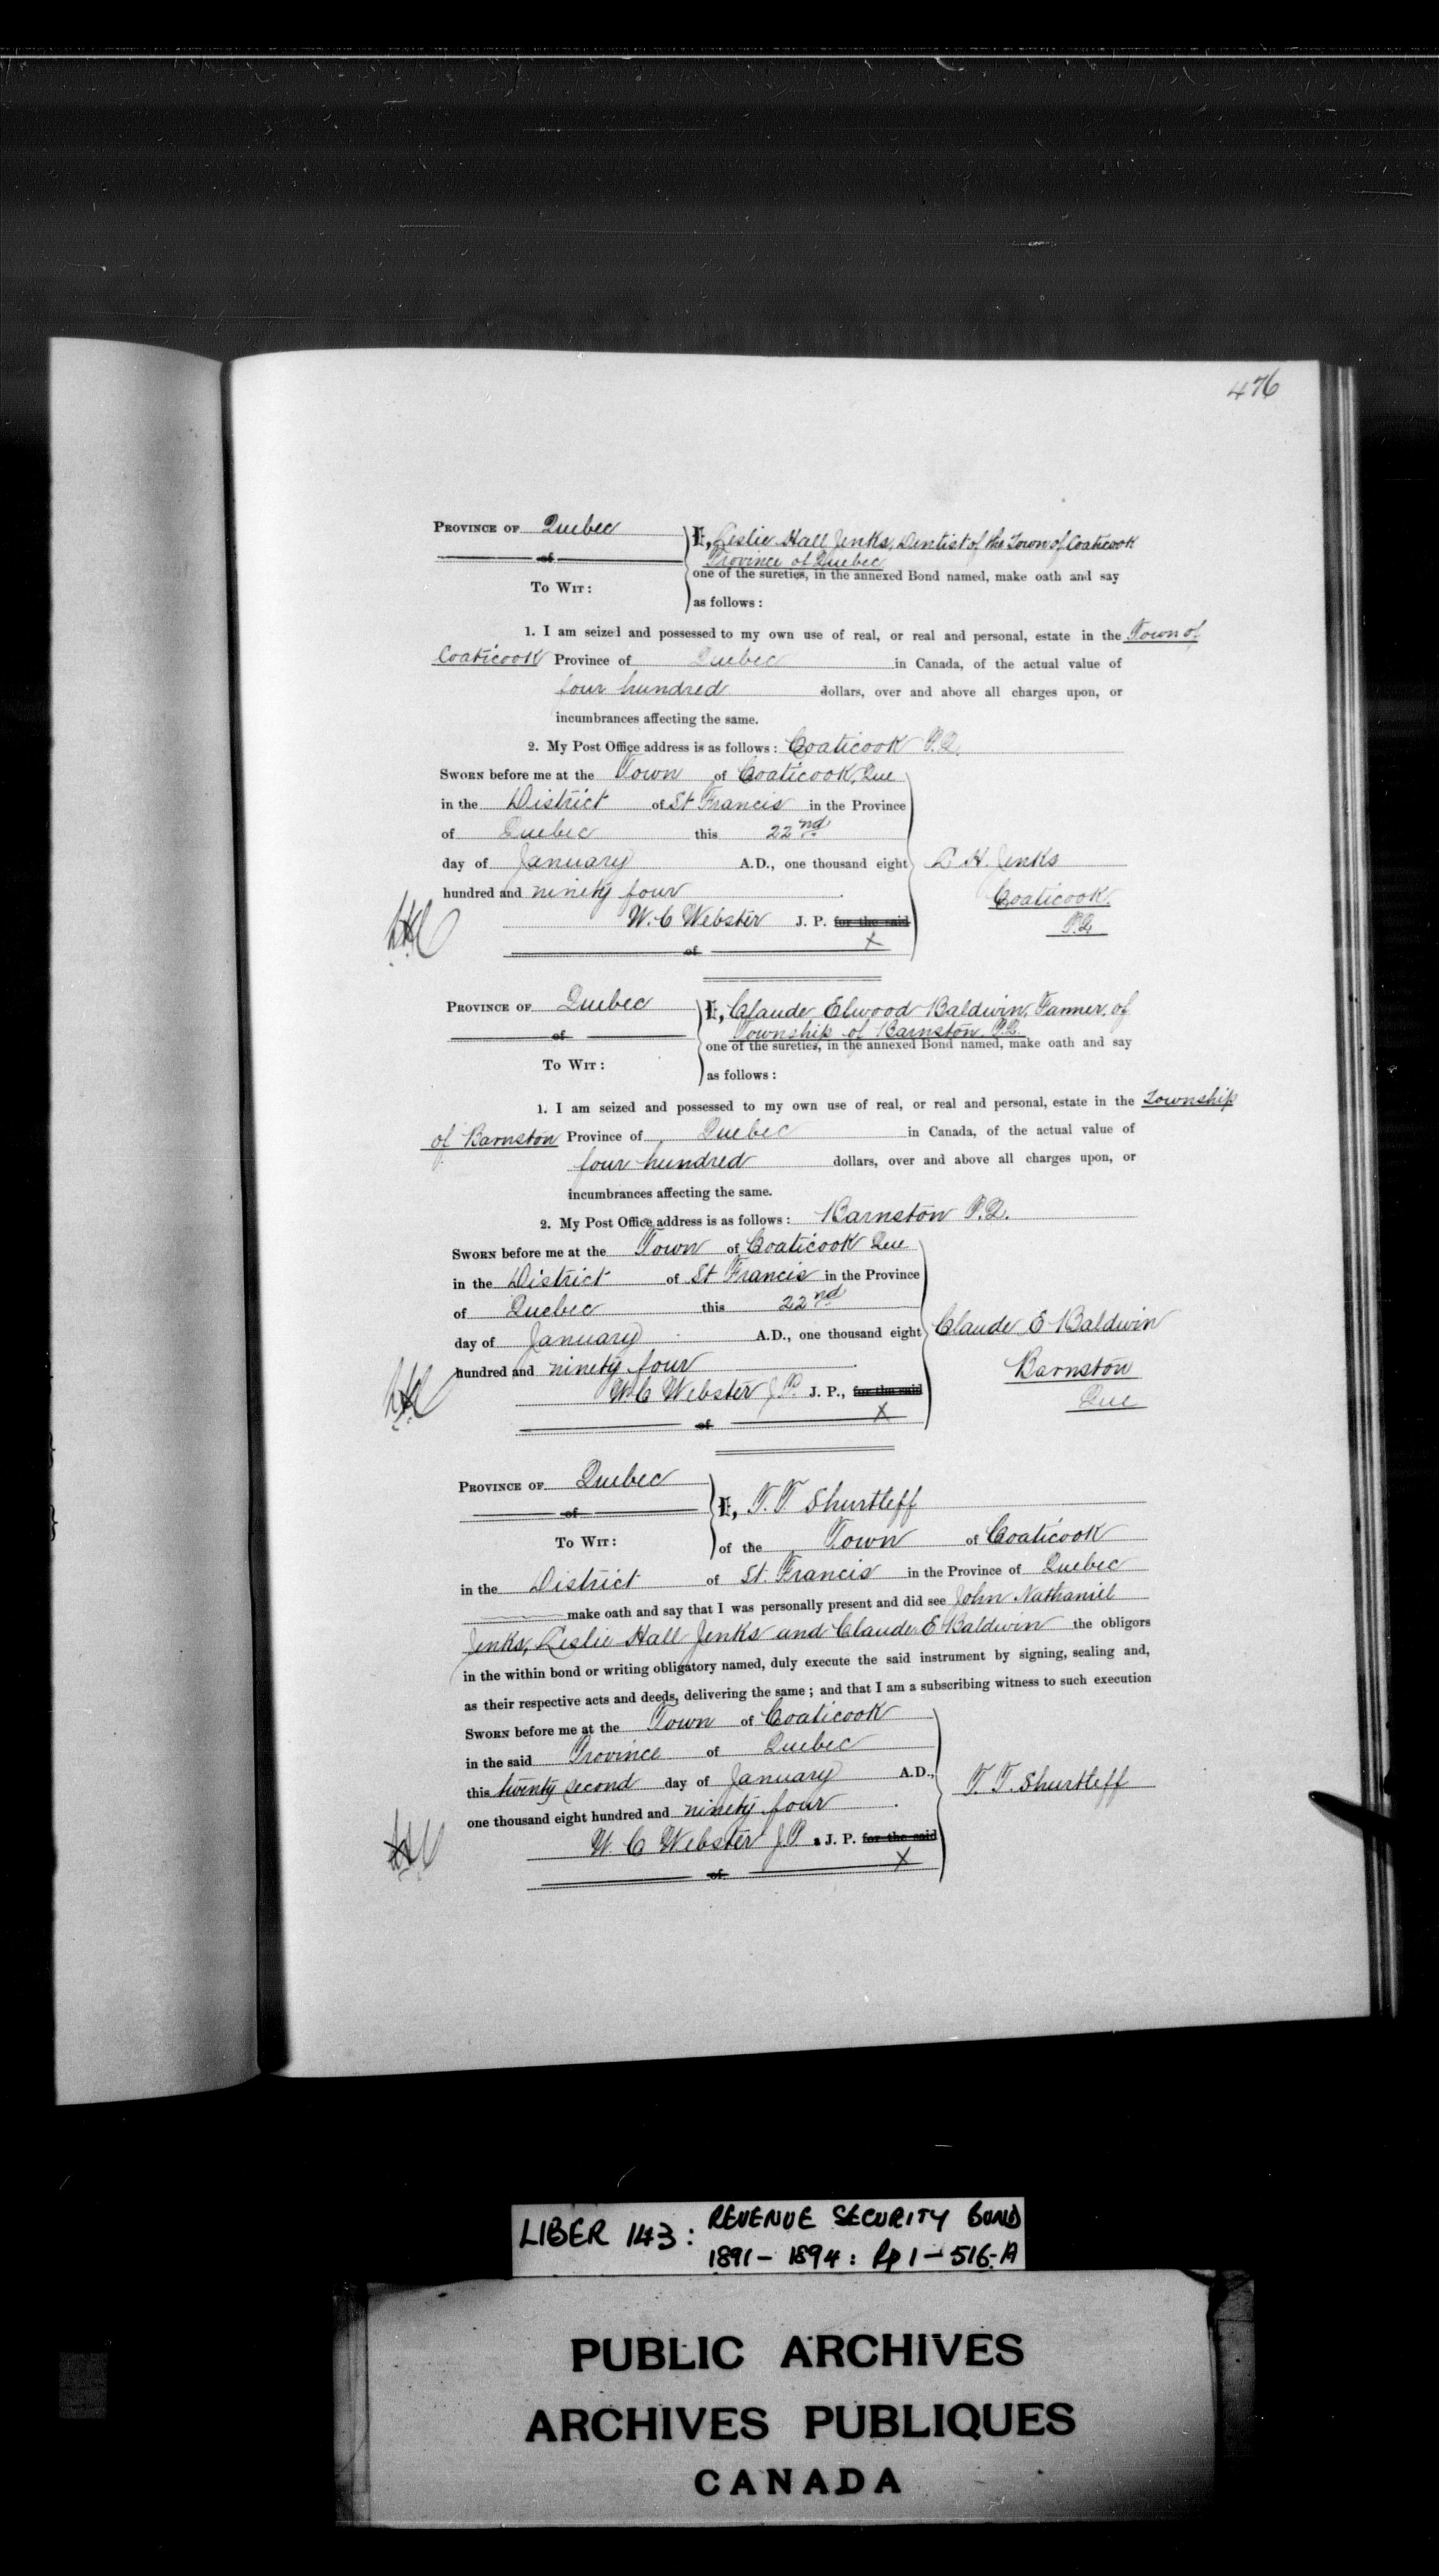 476
PROVINCE OF Quebec
I, Leslie Hall Jenks, Dentist of the Town of Coaticook
of
Province of Quebec
one of the sureties, in the annexed Bond named, make oath and say
TO WIT:
as follows:
1. I am seized and possessed to my own use of real, or real and personal, estate in the Town of
Coaticook Province of Quebec in Canada, of the actual value of
four hundred dollars, over and above all charges upon, or
incumbrances affecting the same.
2. My Post Office address is as follows: Coaticook P.Q.
SWORN before me at the Town of Coaticook, Que
in the District of St Francis in the Province
of Quebec this 22nd
day of January A.D., one thousand eight
L H. Jenks
hundred and ninety four
Coaticook
W. C Webster J. P. for the said
P.Q.
of X
PROVINCE OF Quebec
I, Claude Elwood Baldwin, Farmer, of
of
Township of Barnston P.Q.
one of the sureties, in the annexed Bond named, make oath and say
TO WIT:
as follows:
1. I am seized and possessed to my own use of real, or real and personal, estate in the Township
of Barnston Province of Quebec in Canada, of the actual value of
four hundred dollars, over and above all charges upon, or
incumbrances affecting the same.
2. My Post Office address is as follows: Barnston P.Q.
SWORN before me at the Town of Coaticook Que
in the District of St Francis in the Province
of Quebec this 22nd
day of January A.D., one thousand eight
Claude E Baldwin
hundred and ninety four
Barnston
W. C Webster J P. J. P., for the said
Que
of X
PROVINCE OF Quebec
I, T. T. Shurtleff
of
TO WIT:
of the Town of Coaticook
in the District of St. Francis in the Province of Quebec
make oath and say that I was personally present and did see John Nathaniel
Jenks, Leslie Hall Jenks and Claude E Baldwin the obligors
in the within bond or writing obligatory named, duly execute the said instrument by signing, sealing and,
as their respective acts and deeds, delivering the same; and that I am a subscribing witness to such execution
SWORN before me at the Town of Coaticook
in the said Province of Quebec
this twenty second day of January A.D.,
T. T. Shurtleff
one thousand eight hundred and ninety four
W. C Webster J P. J. P. for the said
of X
LIBER 143: REVENUE SECURITY BOND
1891 - 1894: Pp 1 - 516-A
PUBLIC ARCHIVES
ARCHIVES PUBLIQUES
CANADA